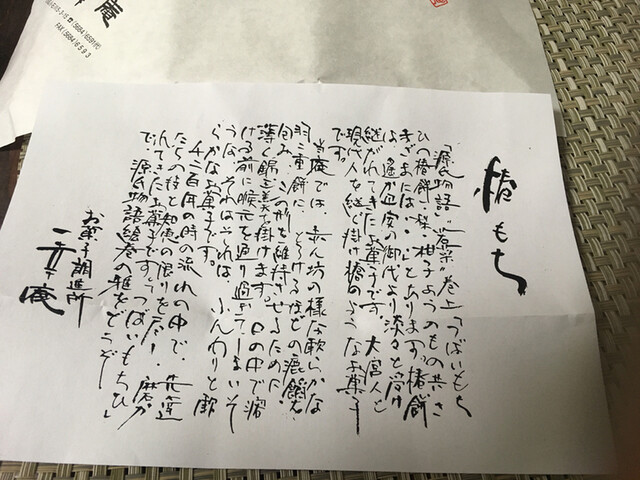 椿もち
「源氏物語」"若菜"巻上「つばいもち
ひ、椿餅、梨、柑子ようのもの共、さ
まざまには…」とあります。椿餅
は、遙か平安の御代より淡々と受け
継がれてきたお菓子です。大宮人と
現代人を継ぐ掛け橋のようなお菓子
です。
当庵では、赤ん坊の様な軟らかな
羽二重餅に、とろけるほどの漉餡を
包み、この形を維持させるために、
薄く錦玉を掛けます。口の中で溶
ける前に喉元を通り過ぎてしまいそ
うな、それはそれは、ふんわりと軟
らかなお菓子です。
千二百年の時の流れの中で、先達
たちの技と知恵の限りを尽し、磨か
れてきたお菓子です。「つばいもちひ」
で、源氏物語絵巻の雅をどうぞ…
お菓子調進所
一幸庵
庵
FAX (5684)6593